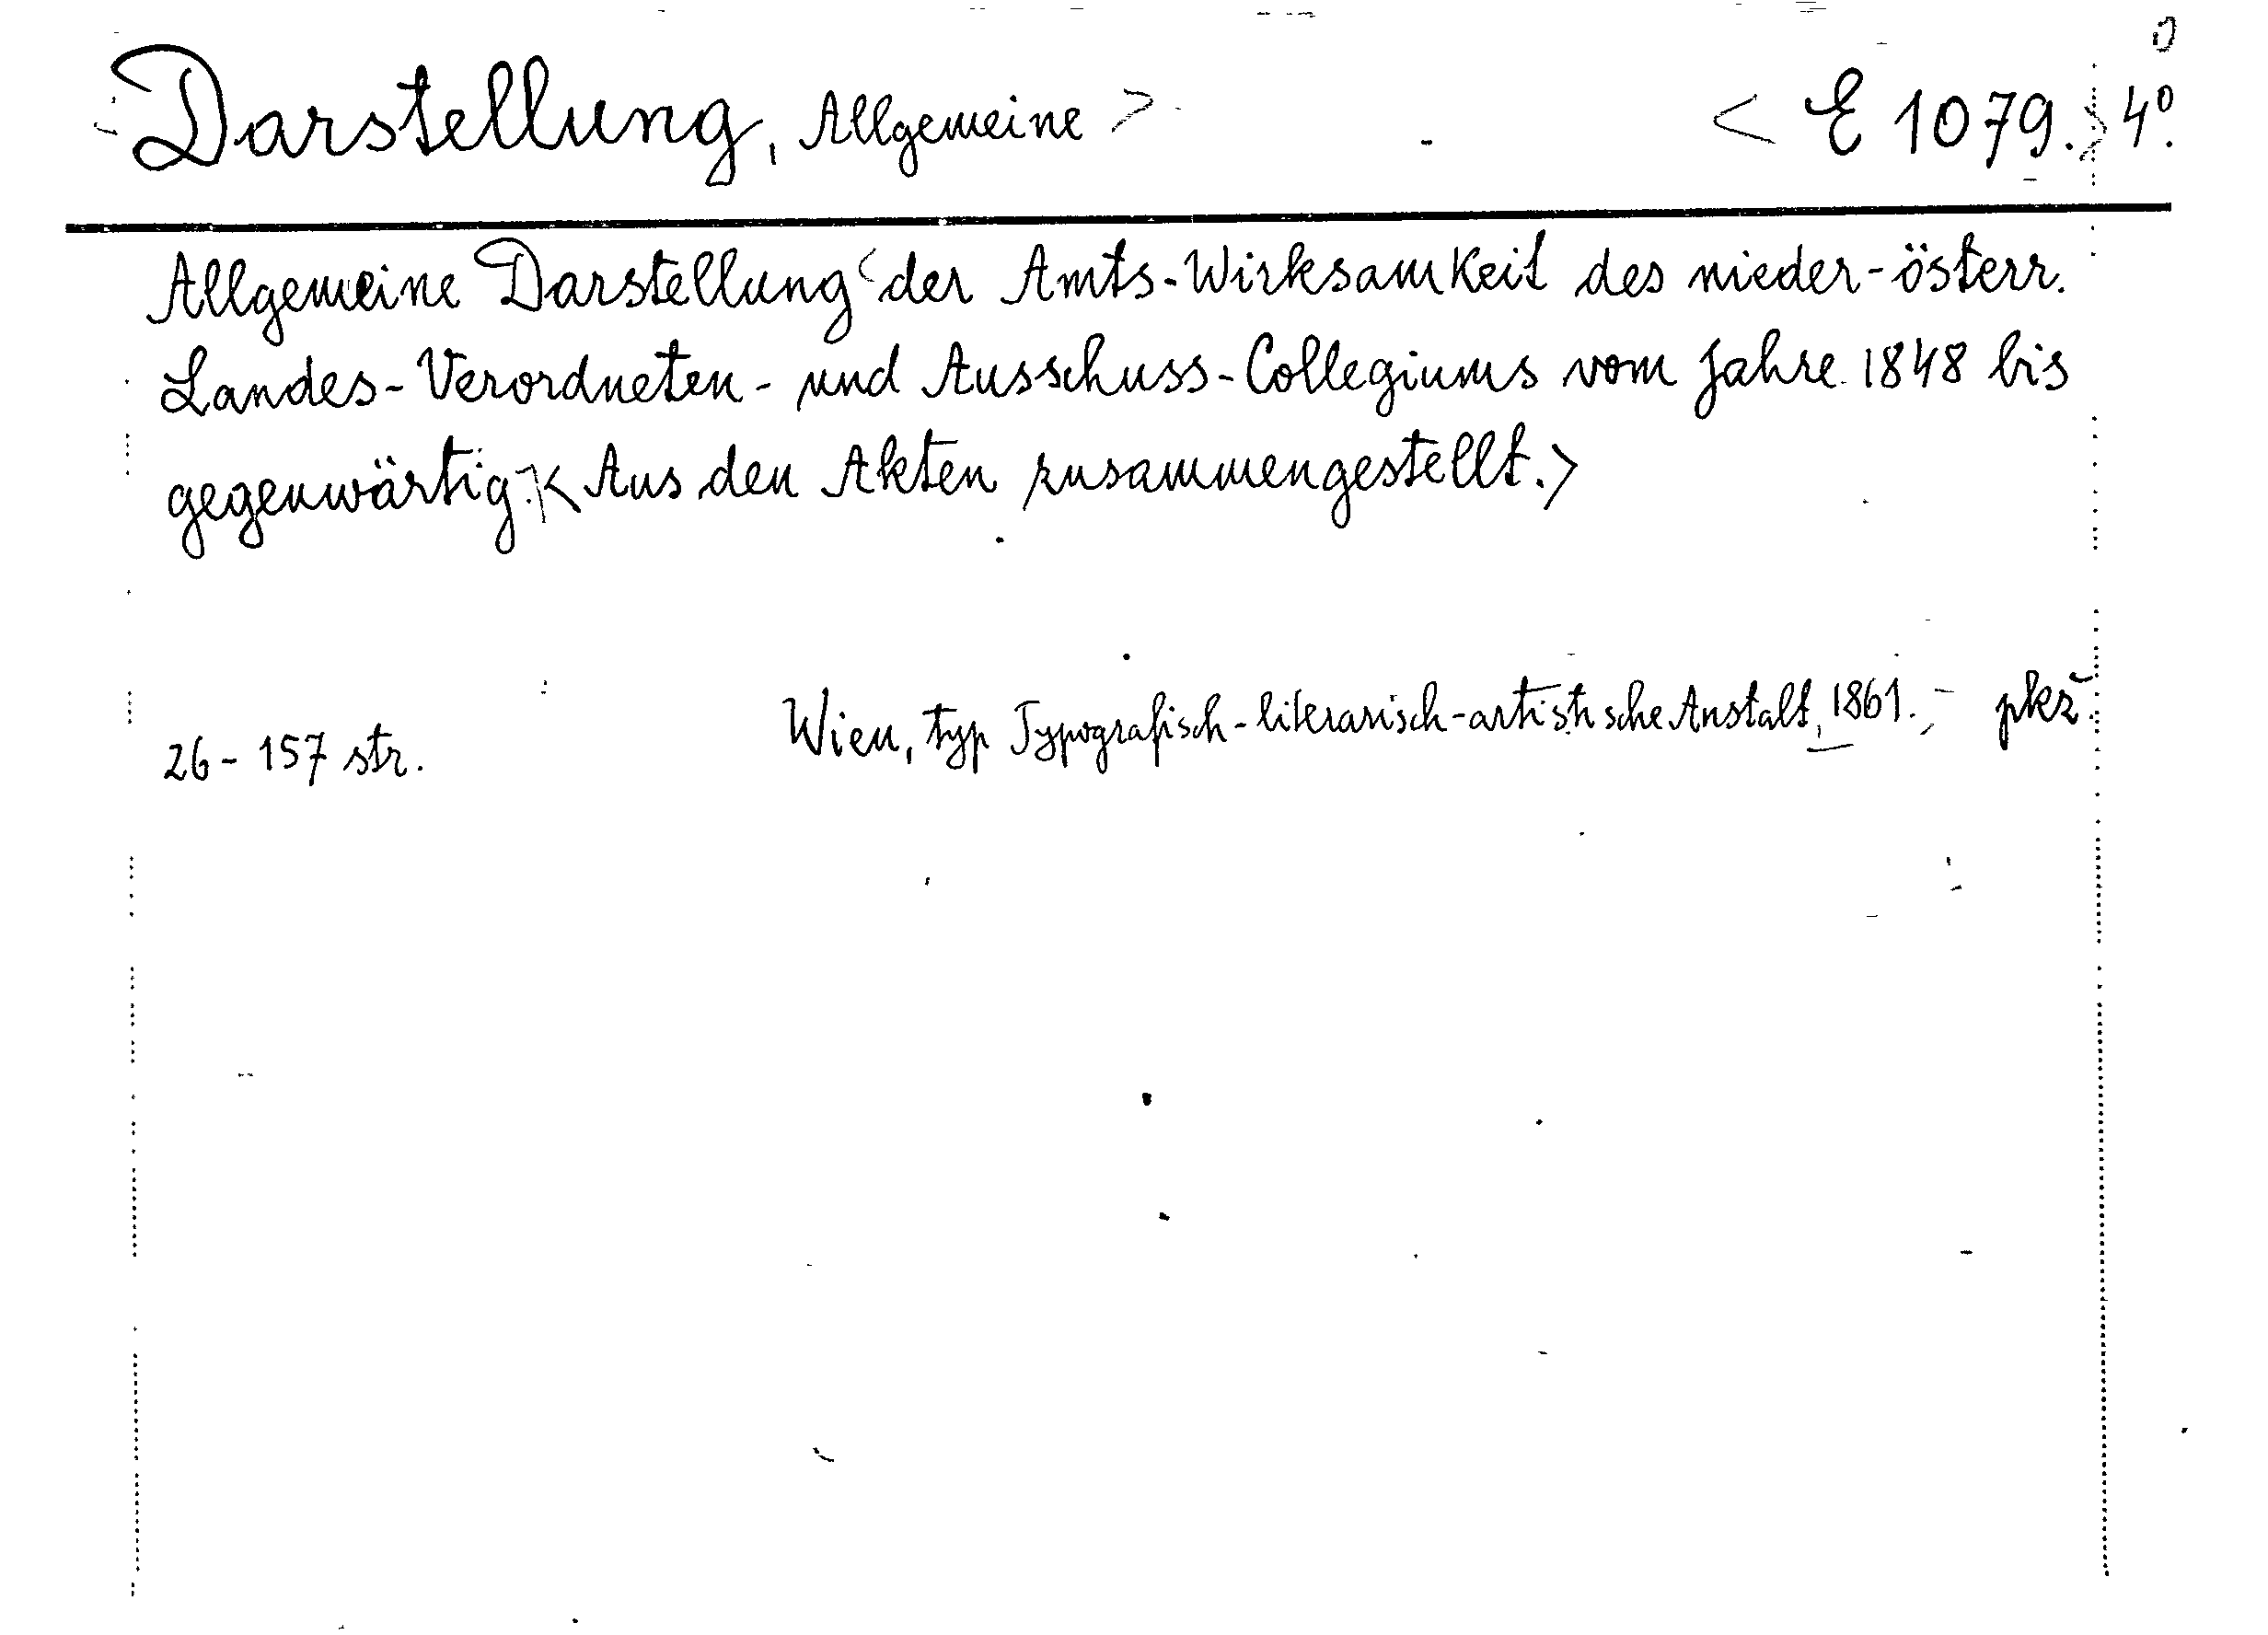 Darstellung, Allgemeine > < E 1079.> 4º.
Allgemeine Darstellung < der Amts-Wirksamkeit des nieder-österr.
Landes-Verordneten- und Ausschuss-Collegiums vom Jahre 1848 bis
gegenwärtig.>< Aus den Akten zusammengestellt.>
Wien, typ Typografisch-literarisch-artistische Anstalt, 1861.,-
26-157 str.